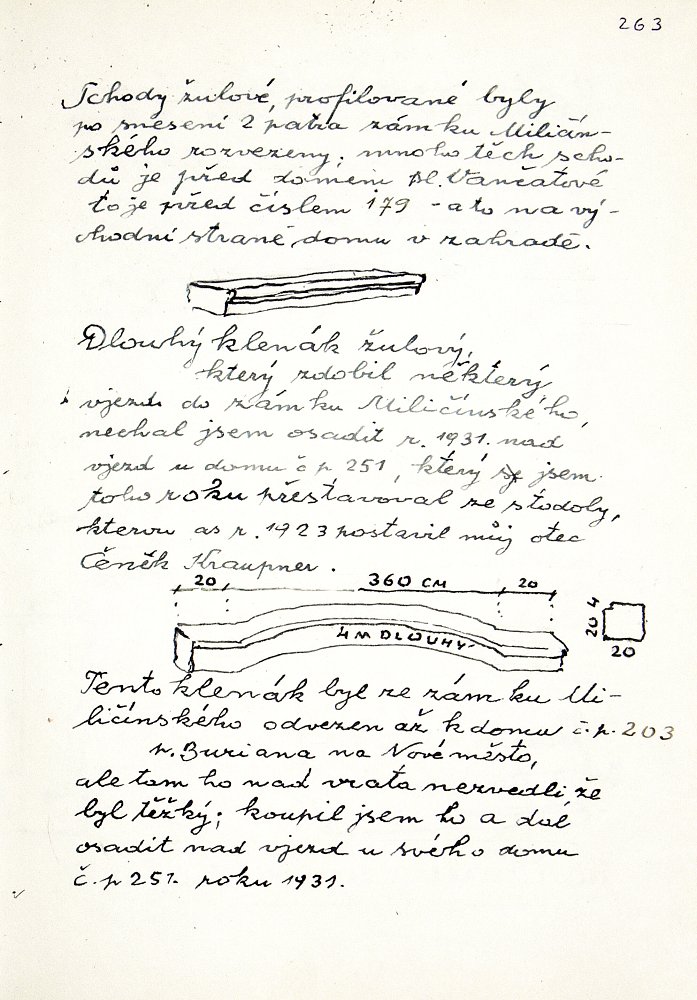 263
Schody žulové, profilované byly
po snesení 2 patra zámku Miličín-
ského rozvezeny; mnoho těch scho-
dů je před domem Vančatové
to je před číslem 179 - a to na vý-
chodní straně domu v zahradě.
Dlouhý klenák žulový,
který zdobil některý
vjezd do zámku Miličínského,
nechal jsem osadit r. 1931. nad
vjezd u domu č p. 251, který jsem
toho roku přestavoval ze stodoly,
kterou as r. 1923 postavil můj otec
Čeněk Kraupner.
20 360 CM 20
4 M DLOUHÝ
20 4
20
Tento klenák byl ze zámku Mi-
ličínského odvezen až k domu č. p. 203
p. Buriana na Nové město,
ale tam ho nad vrata nezvedli, že
byl těžký; koupil jsem ho a dal
osadit nad vjezd u svého domu
č. p 251. roku 1931.